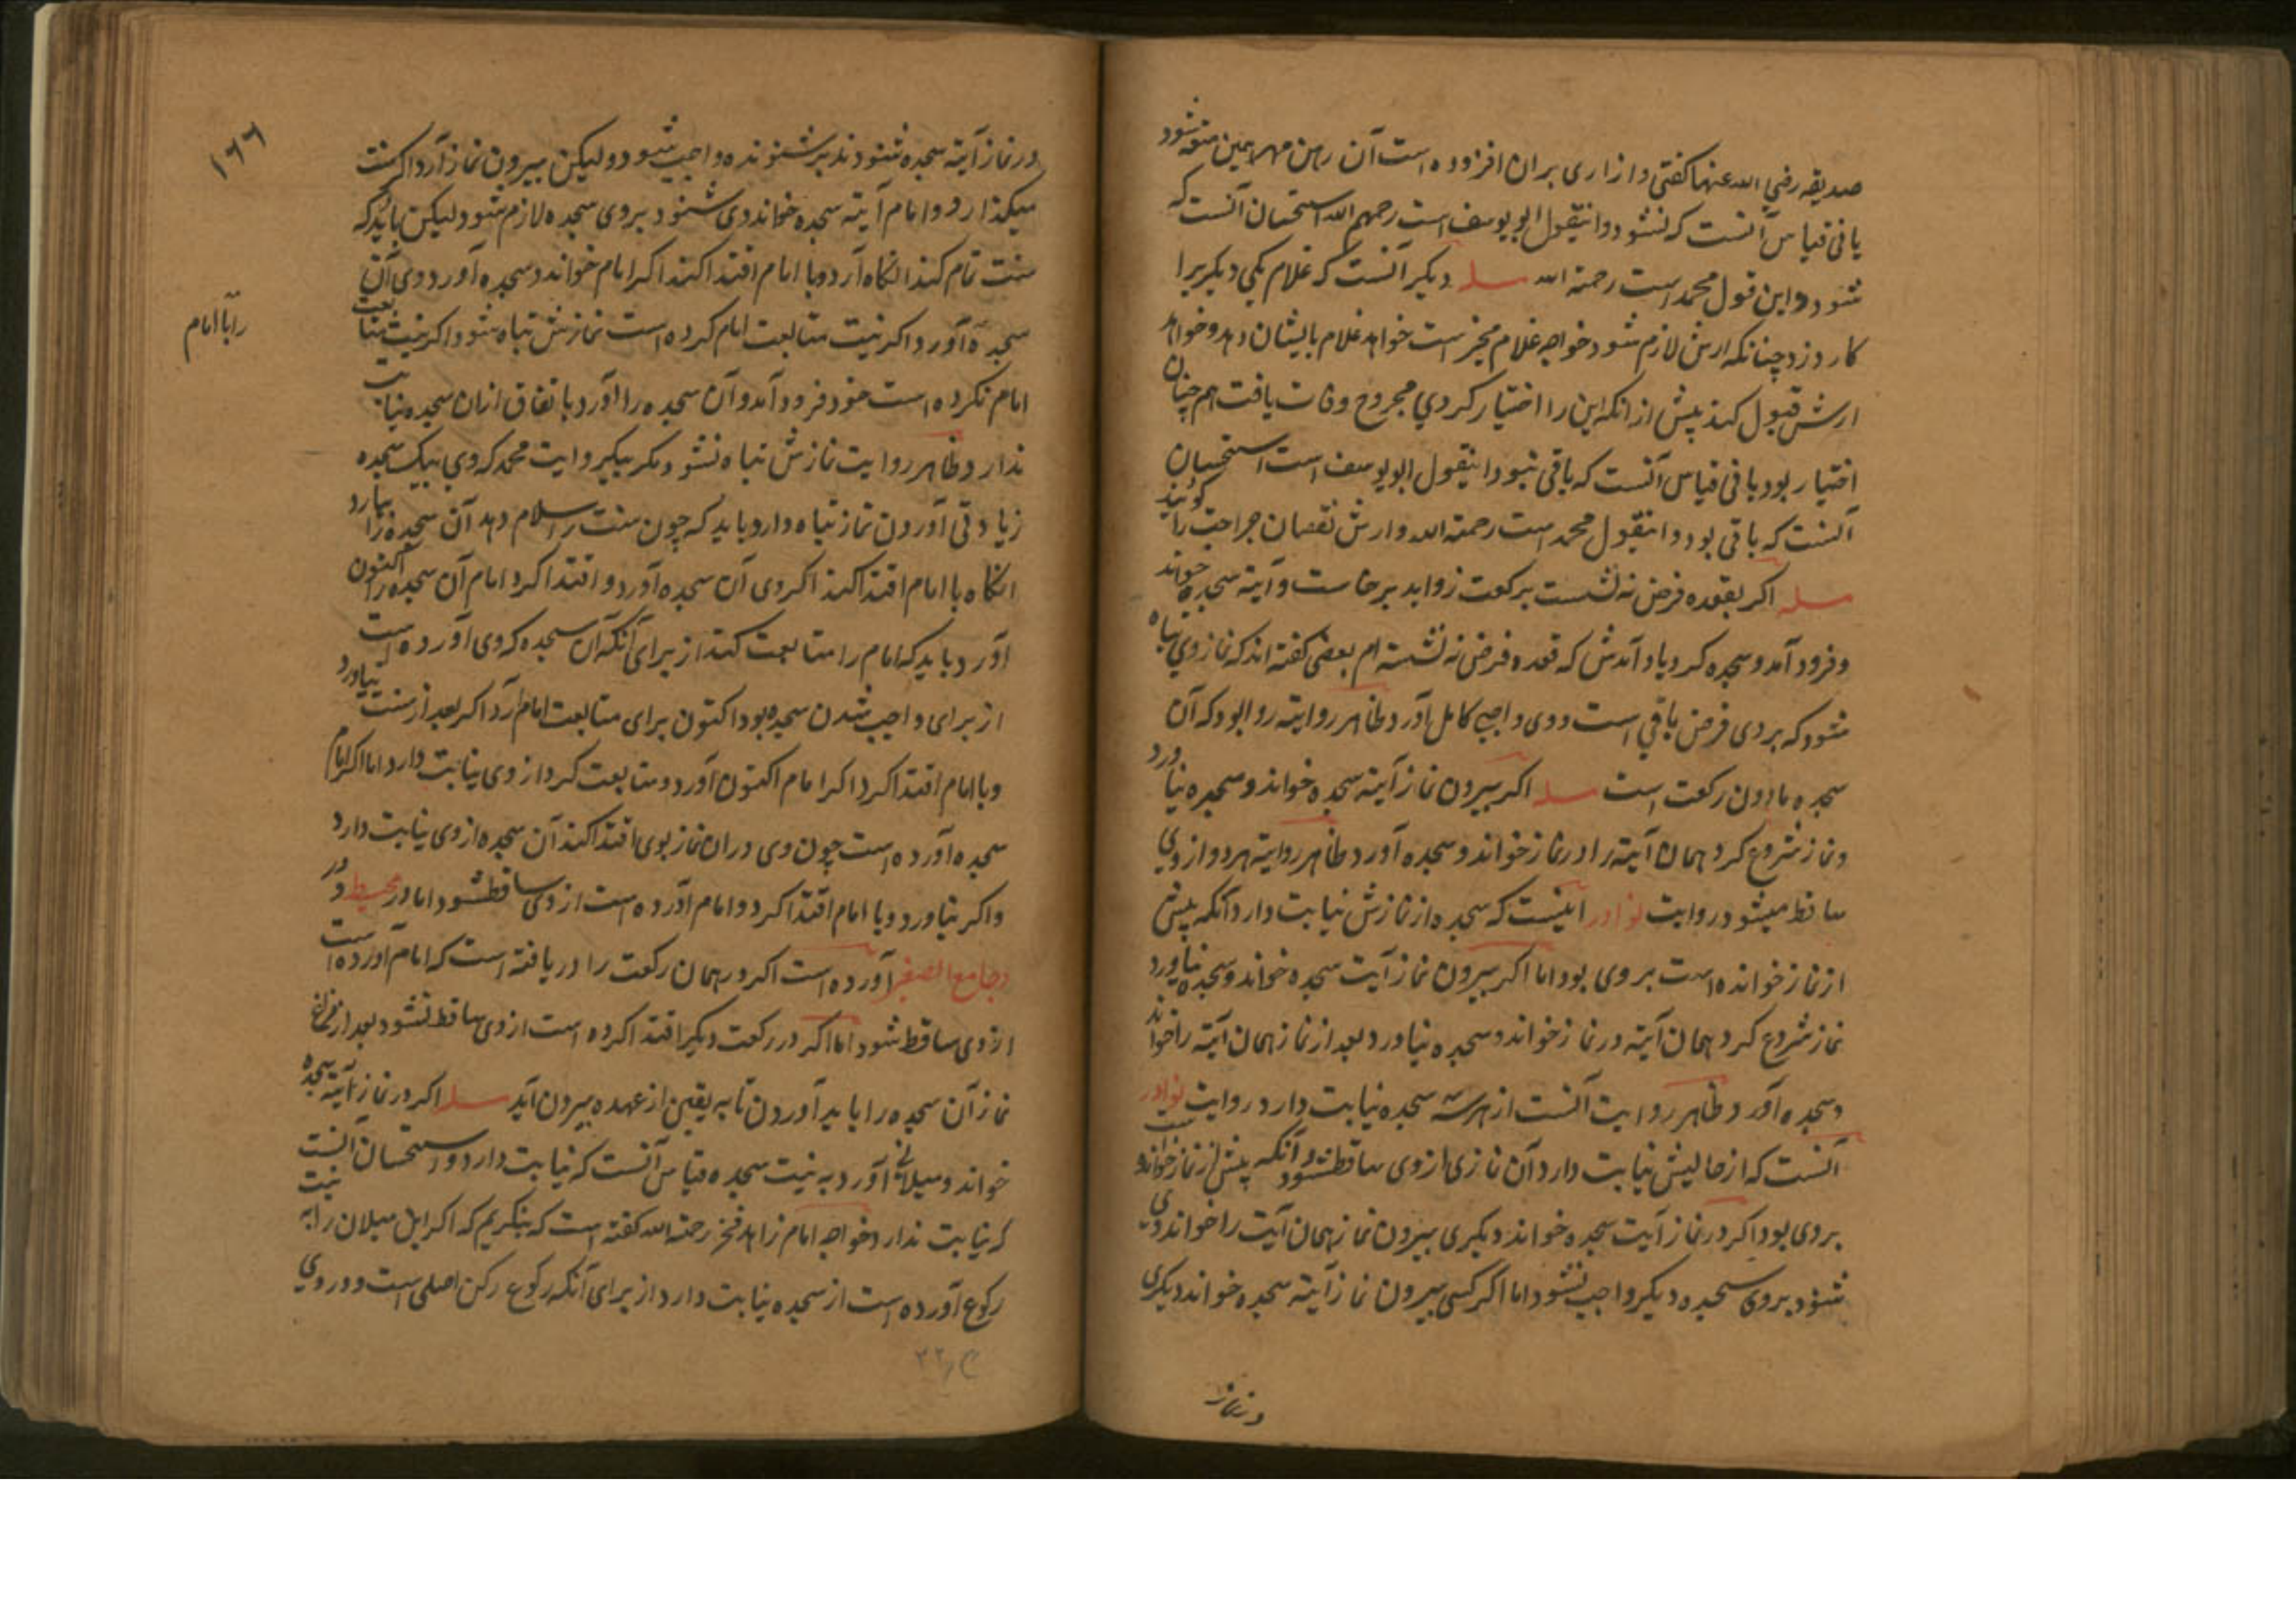 صدیقه رضی الله عنها کفتی و ازاری بران افزوده است آن رهن مهر همین متعه شود
یا نی قیاس آنست که نشود و اینقول ابو یوسف است رحمهم الله استحسان آنست که
شود و این قول محمد است رحمة الله مسله دیکر آنست که غلام یکی دیکریرا
کارد زد چنانکه ارش لازم شود خواجه غلام مخیر است خواهد غلام بایشان دهد و خواهد
ارش قبول کند پیش ازانکه این را اختیار کردی مجروح وفات یافت هم چنان
اختیار بود یا نی قیاس آنست که باقی نبود اینقول ابو یوسف است استحسان
آنست که باقی بود و اینقول محمد است رحمة الله و ارش نقصان جراحت را کویند
مسله اکر بقعده فرض نه نشست برکعت زواید برخاست و آیة سجده خواند
و فرود آمد و سجده کرد یاد آمدش که قعده فرض نه نشسته ام بعضی کفته اند که نماز وی تباه
شود که بر وی فرض باقی است و وی واجبی کامل آورد ظاهر روایة روا بود که آن
سجده مادون رکعت است مسله اکر بیرون نماز آیة سجده خواند و سجده نیاورد
و نماز شروع کرد همان آیة را در نماز خواند و سجده آورد ظاهر روایة هر دو از وی
ساقط میشود در روایت نوادر اینست که سجده از نمازش نیابت دارد آنکه پیش
از نماز خوانده است بر وی بود اما اکر بیرون نماز آیت سجده خواند و سجده نیاورد
نماز شروع کرد همان آیة در نماز خواند و سجده نیاورد بعد از نماز همان آیة را خواند
و سجده آورد ظاهر روایت آنست از هر سه سجده نیابت دارد در روایت نوادر
آنست که از حالیش نیابت دارد آن نمازی از وی ساقط شود و آنکه پیش از نماز خوانده است
بر وی بود اکر در نماز آیت سجده خواند دیکری بیرون نماز همان آیت را خواند وی
شنود بروی سجده دیکر واجب نشود اما اکر کسی بیرون نماز آیة سجده خواند دیکری
در نماز
۱۶۶
در نماز آیة سجده شنودند بر شنونده واجب شود ولیکن بیرون نماز آرد اکر سنت
میکذارد و امام آیة سجده خواند وی شنود بر وی سجده لازم شود لیکن باید که
سنت تمام کند انکاه آرد و با امام اقتدا کند اکر امام خواند و سجده آورد وی آن
سجده آورد اکر نیت متابعت امام کرده است نمازش تباه شود اکر نیت متابعت
را با امام
امام نکرده است خود فرود آمد و آن سجده را آورد باتفاق ازان سجده نیابت
ندارد و ظاهر روایت نمازش تباه نشود مکر بیکروایت محمد که وی بیک سجده
زیادتی آوردن نماز تباه دارد باید که چون سنت را سلام دهد آن سجده را بیارد
انکاه با امام اقتدا کند اکر وی آن سجده آورد و اقتدا کرد امام آن سجده را اکنون
آورد باید که امام را متابعت کند از برای آنکه آن سجده که وی آورده است
از برای واجب شدن سجده بود اکنون برای متابعت امام آرد اکر بعد از سنت نیاورد
و با امام اقتدا کرد اکر امام اکنون آورد و متابعت کرد از وی نیابت دارد اما اکر امام
سجده آورده است چون وی دران نماز بوی اقتدا کند آن سجده از وی نیابت دارد
و اکر نیاورد و با امام اقتدا کرد و امام آورده است از وی ساقط شود اما در محیط و در
و جامع الصغیر آورده است اکر در همان رکعت را دریافته است که امام آورده است
از وی ساقط شود اما اکر در رکعت دیکر اقتدا کرده است از وی ساقط نشود بعد از فراغ
نماز آن سجده را باید آوردن تا به یقین از عهده بیرون آید مسله اکر در نماز آیة سجده
خواند و میلانی آورد به نیت سجده قیاس آنست که نیابت دارد و استحسان آنست
که نیابت ندارد خواجه امام زاهد فخر رحمة الله کفته است که بنکریم که اکر این میلان را به نیت
رکوع آورده است از سجده نیابت دارد از برای آنکه رکوع رکن اصلی است و در وی